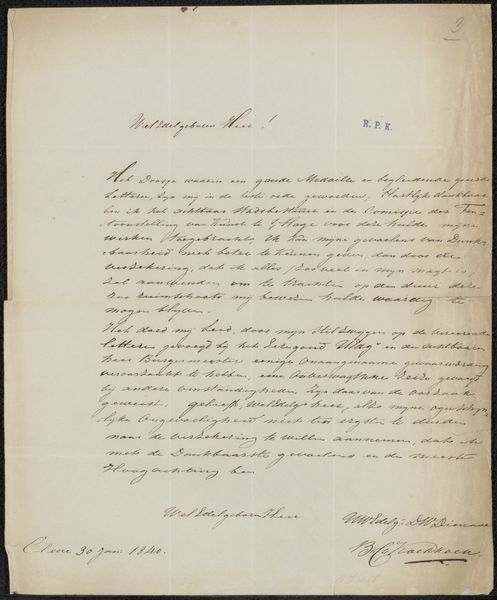 3
WelEdelgeboren Heer!
R. P. K.
Het Doosje waarin een goude Medaille en begeleidende geeerde
Letteren, zijn mij in de beste orde geworden; Hartlijk dankbaar
ben ik het achtbaar Stadsbestuur en de Comissie der Ten-
toonstelling van Kunst te s'Hage voor deze hulde mijne
werken toegebracht, Ik kan mijne gevoelens van Dank-
baarheid niet beter te kennen geven, dan door de
verzekering, dat ik alles, zoo veel in mijn magt is,
zal aanwenden om te trachten op den duur deze
zoo mij bewezen hulde waardig te
mogen blijven.
Het deed mij Leed, door mijn Stilzwijgen op de
letteren gevoegd bij het en den achtbaaren
Heer Burgemeester eenige Onaangename gewaarwording
veroorzaakt te hebben, eene Onverwachte Reize gevoegd
bij andere omstandigheden zijn daar van de oorzaak
geweest. gelieft, WelEdele heer, alzo mijne
lijke Ongevoeligheid niet ten ergsten te duiden
maar de verzekering te willen aannemen, dat ik
met de Dankbaarste gevoelens en de meeste
Hoogachting ben
WelEdelgeboren Heer
UWEdelg: DW Dienaar
Cleve 30 Jan. 1840.
B. C. Koekkoek